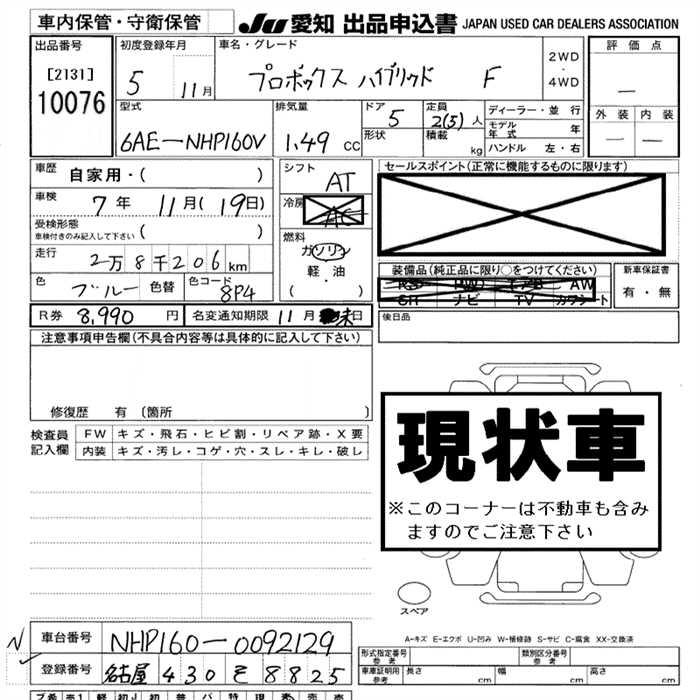 車内保管・守衛保管 JU 愛知 出品申込書 JAPAN USED CAR DEALERS ASSOCIATION
出品番号
[2131]
10076
初度登録年月
5 11月
車名・グレード
プロボックス ハイブリッド F
2WD
・
4WD
評価点
—
外装 内装
— —
型式
6AE-NHP160V
排気量
1.49 cc
ドア 5
形状
定員 2(5)人
積載 kg
ディーラー・並行
モデル年式 年
ハンドル 左・右
車歴
自家用・( )
車検
7年 11月(19日)
受検形態
車検付きのみ記入して下さい ( )
走行
2万8千206km
色 ブルー 色替 色コード 8P4
シフト
AT
冷房
AC
燃料
ガソリン
軽・油
( ・ )
セールスポイント(正常に機能するものに限ります)
装備品(純正品に限り○をつけてください)
PS PW エアB AW
SR ナビ TV カワシート
新車保証書
有・無
後日品
R券 8,990 円 名変通知期限 11月 末日
注意事項申告欄(不具合内容等は具体的に記入して下さい)
修復歴 有 〔箇所 〕
検査員記入欄
FW キズ・飛石・ヒビ割・リペア跡・X要
内装 キズ・汚レ・コゲ・穴・スレ・キレ・破レ
現状車
※このコーナーは不動車も含み
ますのでご注意下さい
スペア
A-キズ E-エクボ U-凹み W-補修跡 S-サビ C-腐食 XX-交換済
N
車台番号 NHP160-0092129
登録番号 名古屋 430 そ 8825
形式指定番号
参考
類別区分番号
参考
車庫証明用
参考
長さ cm 幅 cm 高さ cm